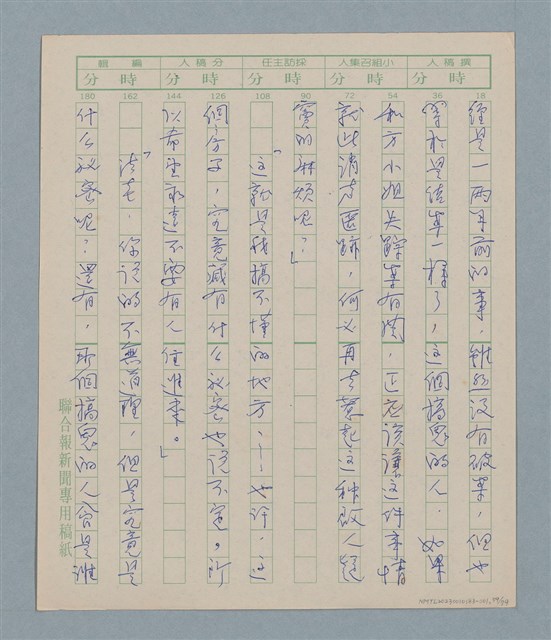 撰稿人 小組召集人 採訪主任 分稿人 編輯
時 分 時 分 時 分 時 分 時 分
18 36 54 72 90 108 126 144 162 180
經是一兩年前的事，雖然沒有破案，但也
等於是結案一樣了，這個搞鬼的人，如果
和方小姐失蹤案有關，正應該讓這件事情
就此消声匿跡，何必再去惹起這種啟人疑
竇的麻煩呢？」
「這就是我搞不懂的地方，——也許，這
個房子，究竟藏有什么秘密也說不定。所
以希望永遠不要有人住進來。」
你說的不無道理，但是究竟是
什么秘密呢？還有，那個搞鬼的人會是誰
聯合報新聞專用稿紙